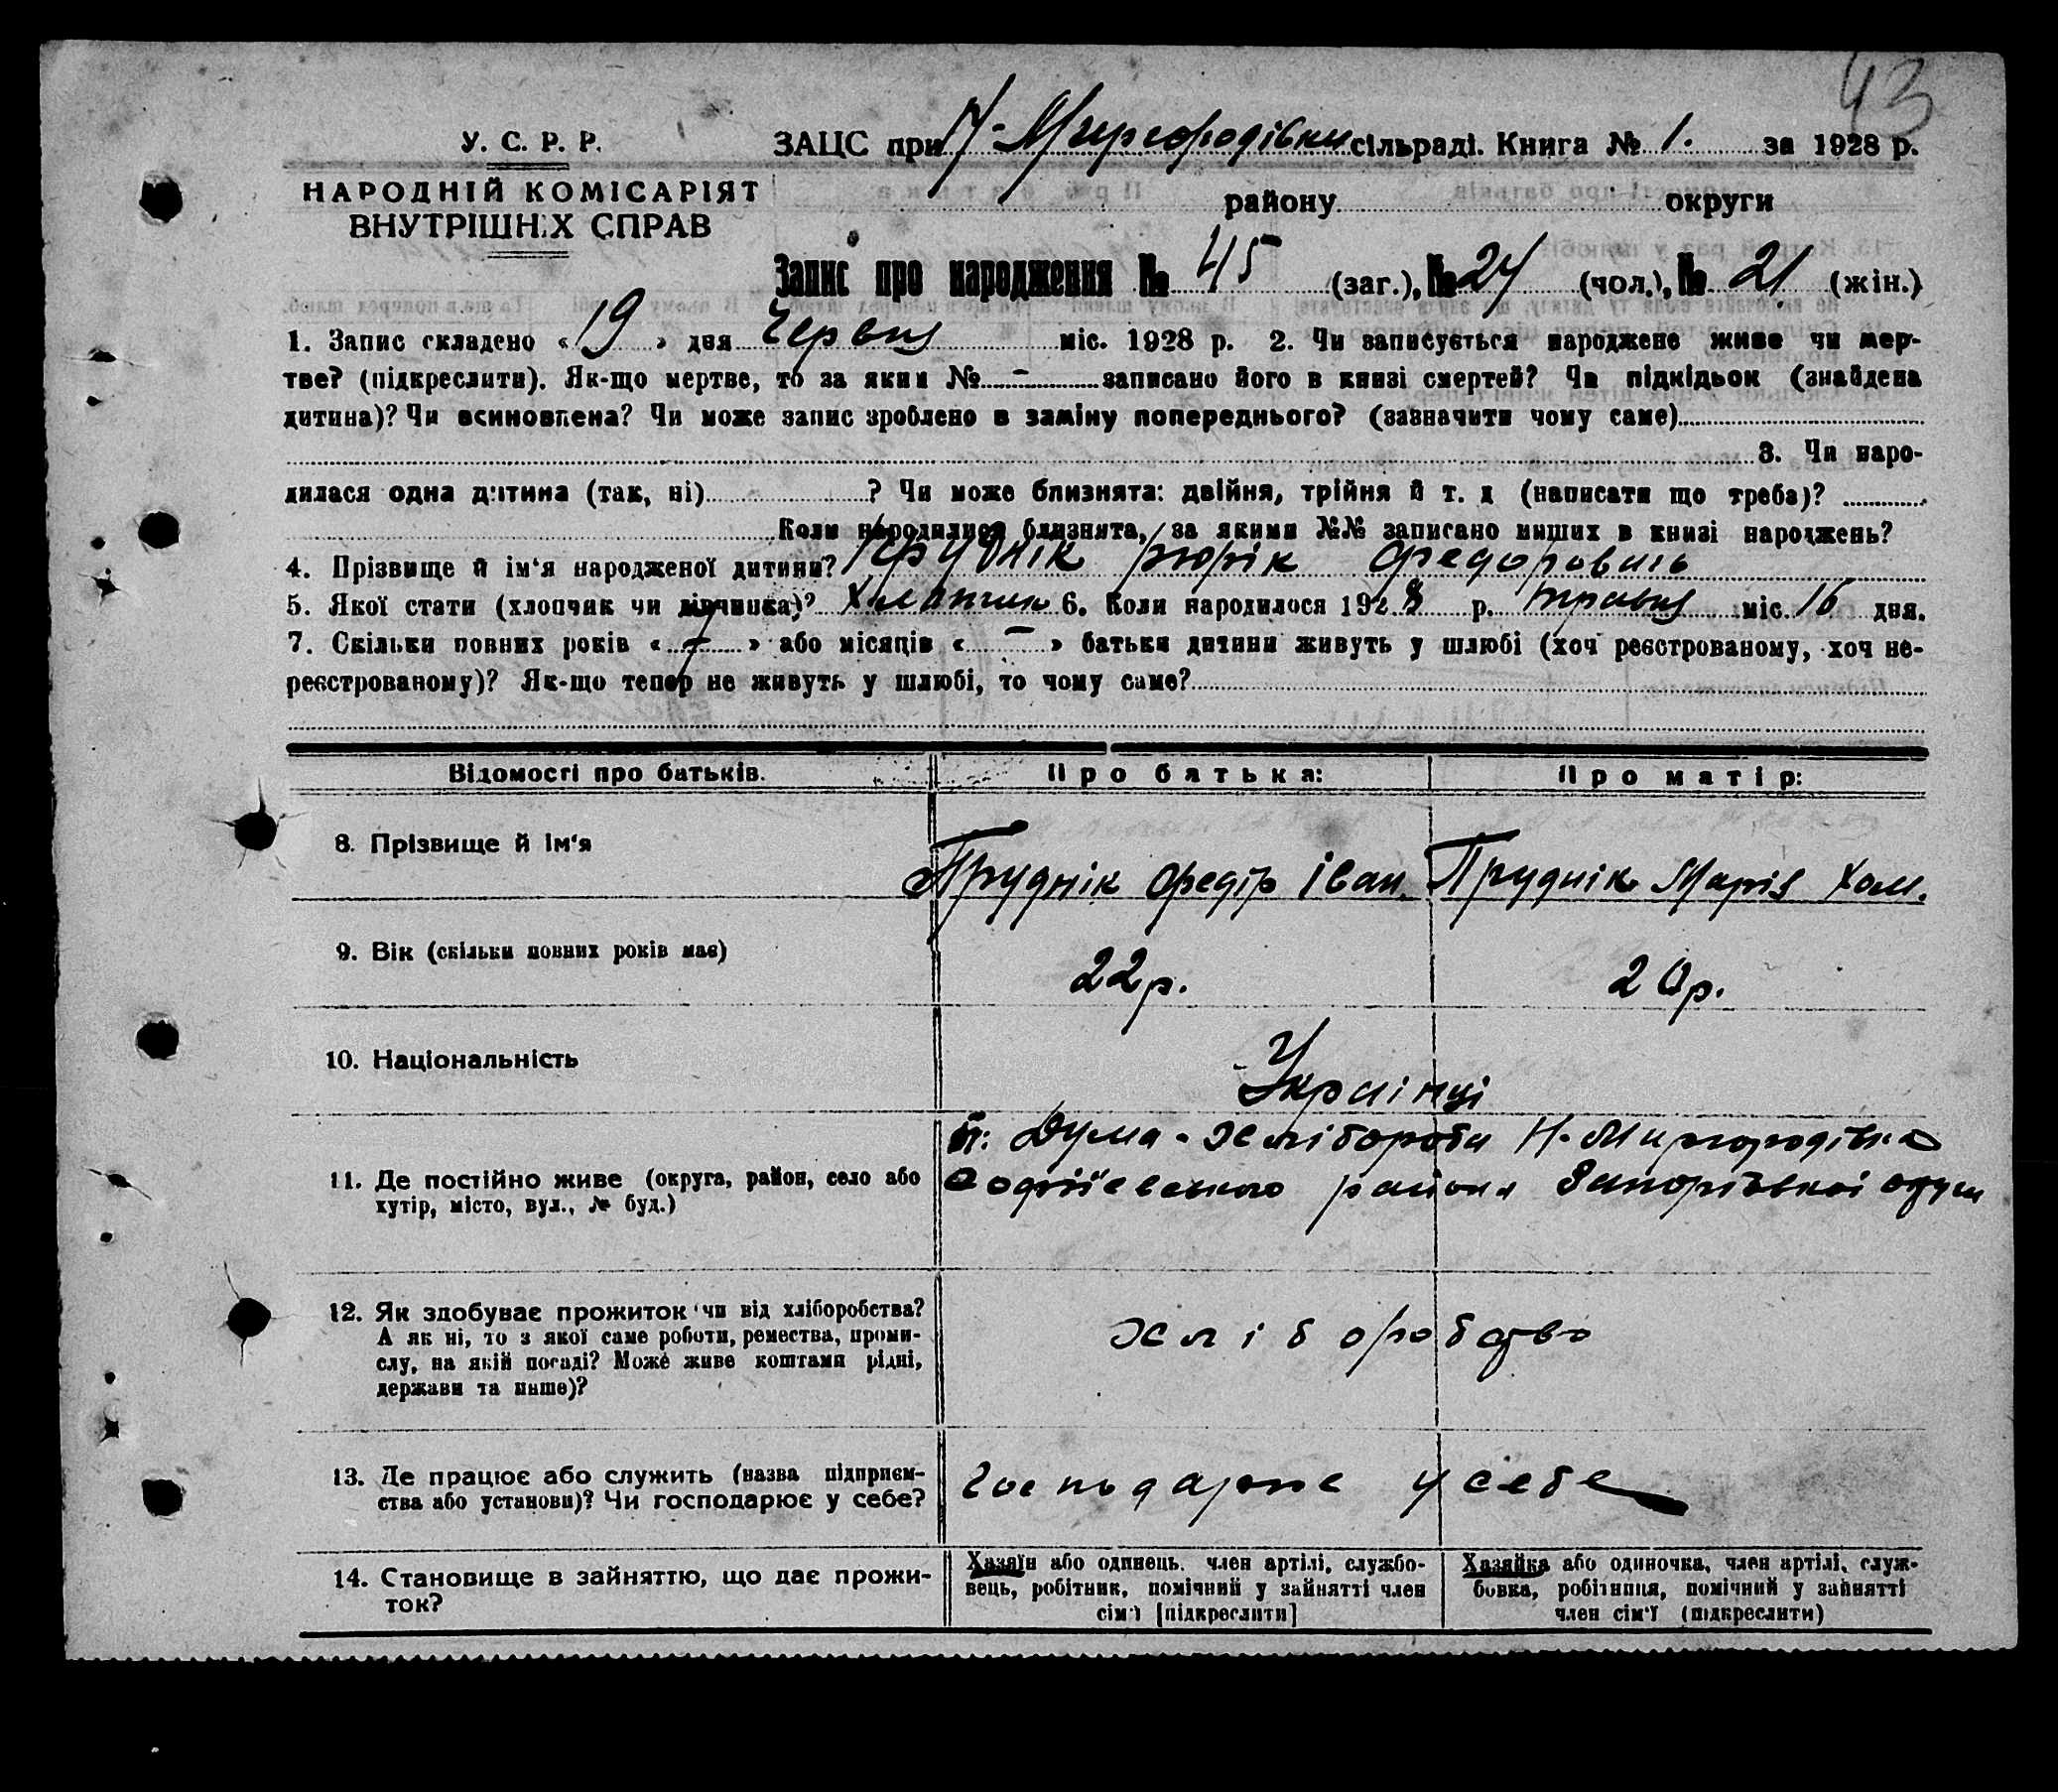 43
У. С. Р. Р.
НАРОДНІЙ КОМІСАРІЯТ
ВНУТРІШНІХ СПРАВ
ЗАЦС при Н-Миргородівки сільраді. Книга № 1. за 1928 р.
району округи
Запис про народження № 45 (заг.), № 24 (чол.), № 21 (жін.)
1. Запис складено « 19 » дня Червня міс. 1928 р. 2. Чи записується народжене живе чи мер-
тве? (підкреслити). Як-що мертве, то за яким № - записано його в книзі смертей? Чи підкідьок (знайдена
дитина)? Чи всиновлена? Чи може запис зроблено в заміну попереднього? (зазначити чому саме)
3. Чи наро-
дилася одна дитина (так, ні) ? Чи може близнята: двійня, трійня й т. д (написати що треба)?
Коли народилися близнята, за якими №№ записано инших в книзі народжень?
4. Прізвище й ім‘я народженої дитини? Пруднік Рюрік Федоровичь
5. Якої стати (хлопчик чи дівчинка)? Хлопчик 6. Коли народилося 1928 р. травня міс. 16 дня.
7. Скільки повних років « - » або місяців « - » батьки дитини живуть у шлюбі (хоч реєстрованому, хоч не-
реєстрованому)? Як-що тепер не живуть у шлюбі, то чому саме?
Відомості про батьків. Про батька: Про матір:
8. Прізвище й ім‘я Пруднік Федір Іван. Пруднік Марія Хом.
9. Вік (скільки повних років має) 22р. 20р.
10. Національність Українці
11. Де постійно живе (округа, район, село або
хутір, місто, вул., № буд.)
Дума-Хлібороба Н-Миргородівка
Софіївського района Запорізької округи
12. Як здобуває прожиток чи від хліборобства?
А як ні, то з якої саме роботи, ремества, проми-
слу, на якій посаді? Може живе коштами рідні,
держави та инше)?
хліборобство
13. Де працює або служить (назва підприєм-
ства або установи)? Чи господарює у себе?
Господарює у себе
14. Становище в зайняттю, що дає прожи-
ток?
Хазяїн або одинець, член артілі, службо-
вець, робітник, помічний у зайнятті член
сім‘ї [підкреслити]
Хазяйка або одиночка, член артілі, служ-
бовка, робітниця, помічний у зайнятті
член сім‘ї (підкреслити)